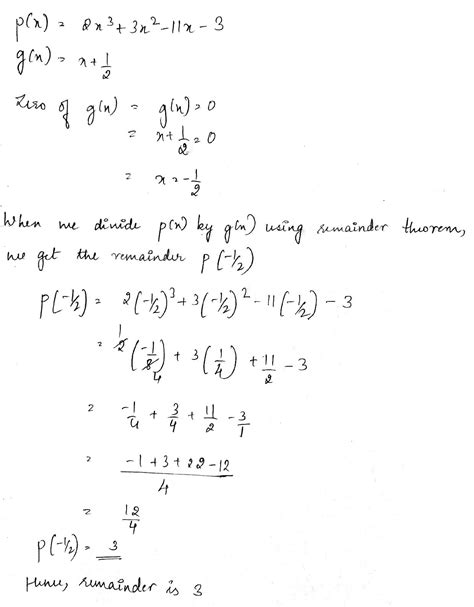 p(x) = 2x³ + 3x² - 11x - 3
g(x) = x + 1/2
Zero of g(x) = g(x) = 0
= x + 1/2 = 0
= x = -1/2
When we divide p(x) by g(x) using remainder theorem,
we get the remainder p(-1/2)
p(-1/2) = 2(-1/2)³ + 3(-1/2)² - 11(-1/2) - 3
= 2(-1/8) + 3(1/4) + 11/2 - 3
1 4
= -1/4 + 3/4 + 11/2 - 3/1
= (-1 + 3 + 22 - 12)/4
= 12/4
p(-1/2) = 3
Hence, remainder is 3